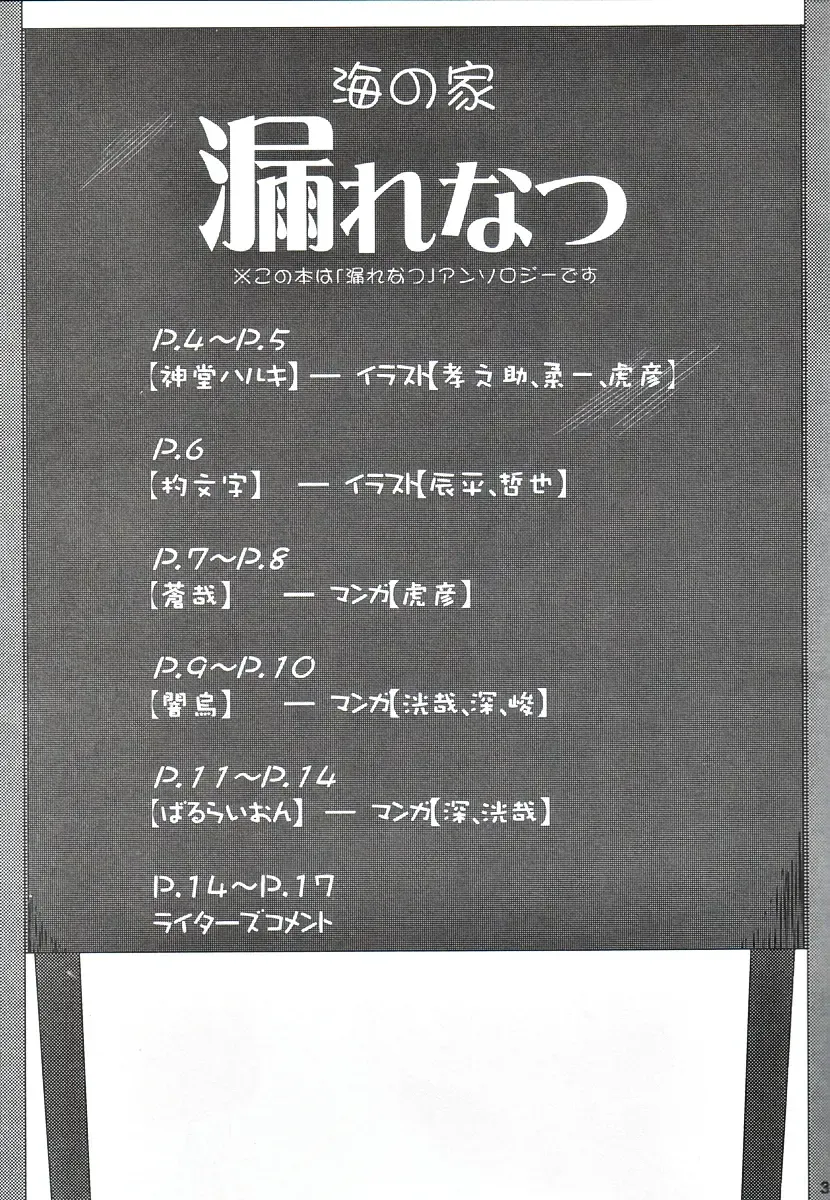 海の家
漏れなつ
※この本は「漏れなつ」アンソロジーです
P.4～P.5
【神堂ハルキ】 ー イラスト【孝之助、柔一、虎彦】
P.6
【杓文字】 ー イラスト【辰平、哲也】
P.7～P.8
【蒼哉】 ー マンガ【虎彦】
P.9～P.10
【闇烏】 ー マンガ【洸哉、深、峻】
P.11～P.14
【ばるらいおん】 ー マンガ【深、洸哉】
P.14～P.17
ライターズコメント
3